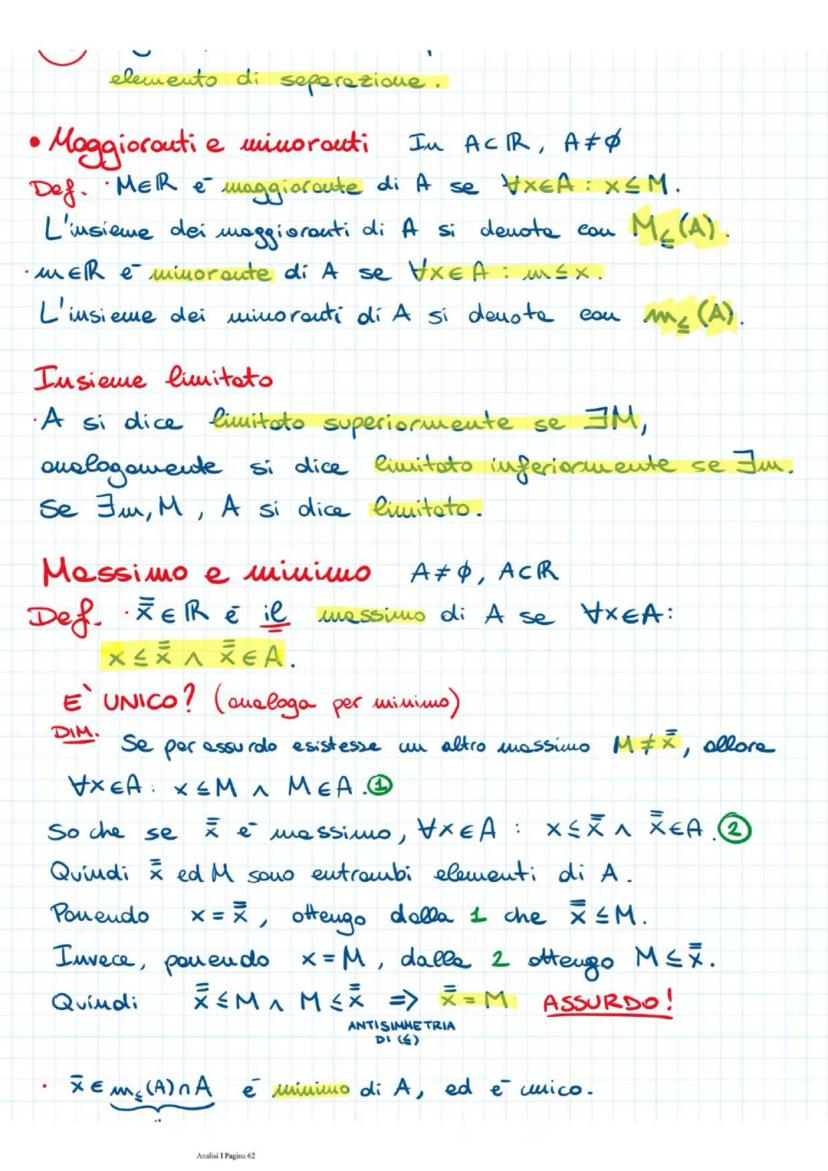 elemento di separazione.
• Maggioranti e minoranti In A⊂ℝ, A≠∅
Def. · M∈ℝ è maggiorante di A se ∀x∈A : x≤M.
L'insieme dei maggioranti di A si denota con M≤(A).
· m∈ℝ è minorante di A se ∀x∈A : m≤x.
L'insieme dei minoranti di A si denota con m≤(A).
Insieme limitato
· A si dice limitato superiormente se ∃M,
analogamente si dice limitato inferiormente se ∃m.
Se ∃m,M, A si dice limitato.
Massimo e minimo A≠∅, A⊂ℝ
Def. · x̿∈ℝ è il massimo di A se ∀x∈A:
x≤x̿ ∧ x̿∈A.
E` UNICO? (analoga per minimo)
DIM. Se per assurdo esistesse un altro massimo M≠x̿, allora
∀x∈A: x≤M ∧ M∈A. ①
So che se x̿ è massimo, ∀x∈A : x≤x̿ ∧ x̿∈A. ②
Quindi x̿ ed M sono entrambi elementi di A.
Ponendo x=x̿, ottengo dalla 1 che x̿≤M.
Invece, ponendo x=M, dalla 2 ottengo M≤x̿.
Quindi x̿≤M ∧ M≤x̿ => x̿=M ASSURDO!
ANTISIMMETRIA
DI (≤)
· x̄∈m≤(A)∩A è minimo di A, ed è unico.
Analisi I Pagina 62